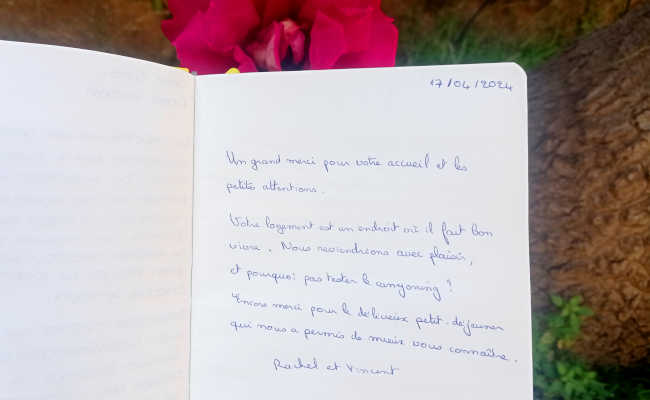 17/04/2024
Un grand merci pour votre accueil et les
petites attentions.
Votre logement est un endroit où il fait bon
vivre. Nous reviendrions avec plaisir,
et pourquoi pas tester le canyoning ?
Encore merci pour le délicieux petit-déjeuner
qui nous a permis de mieux vous connaître.
Rachel et Vincent